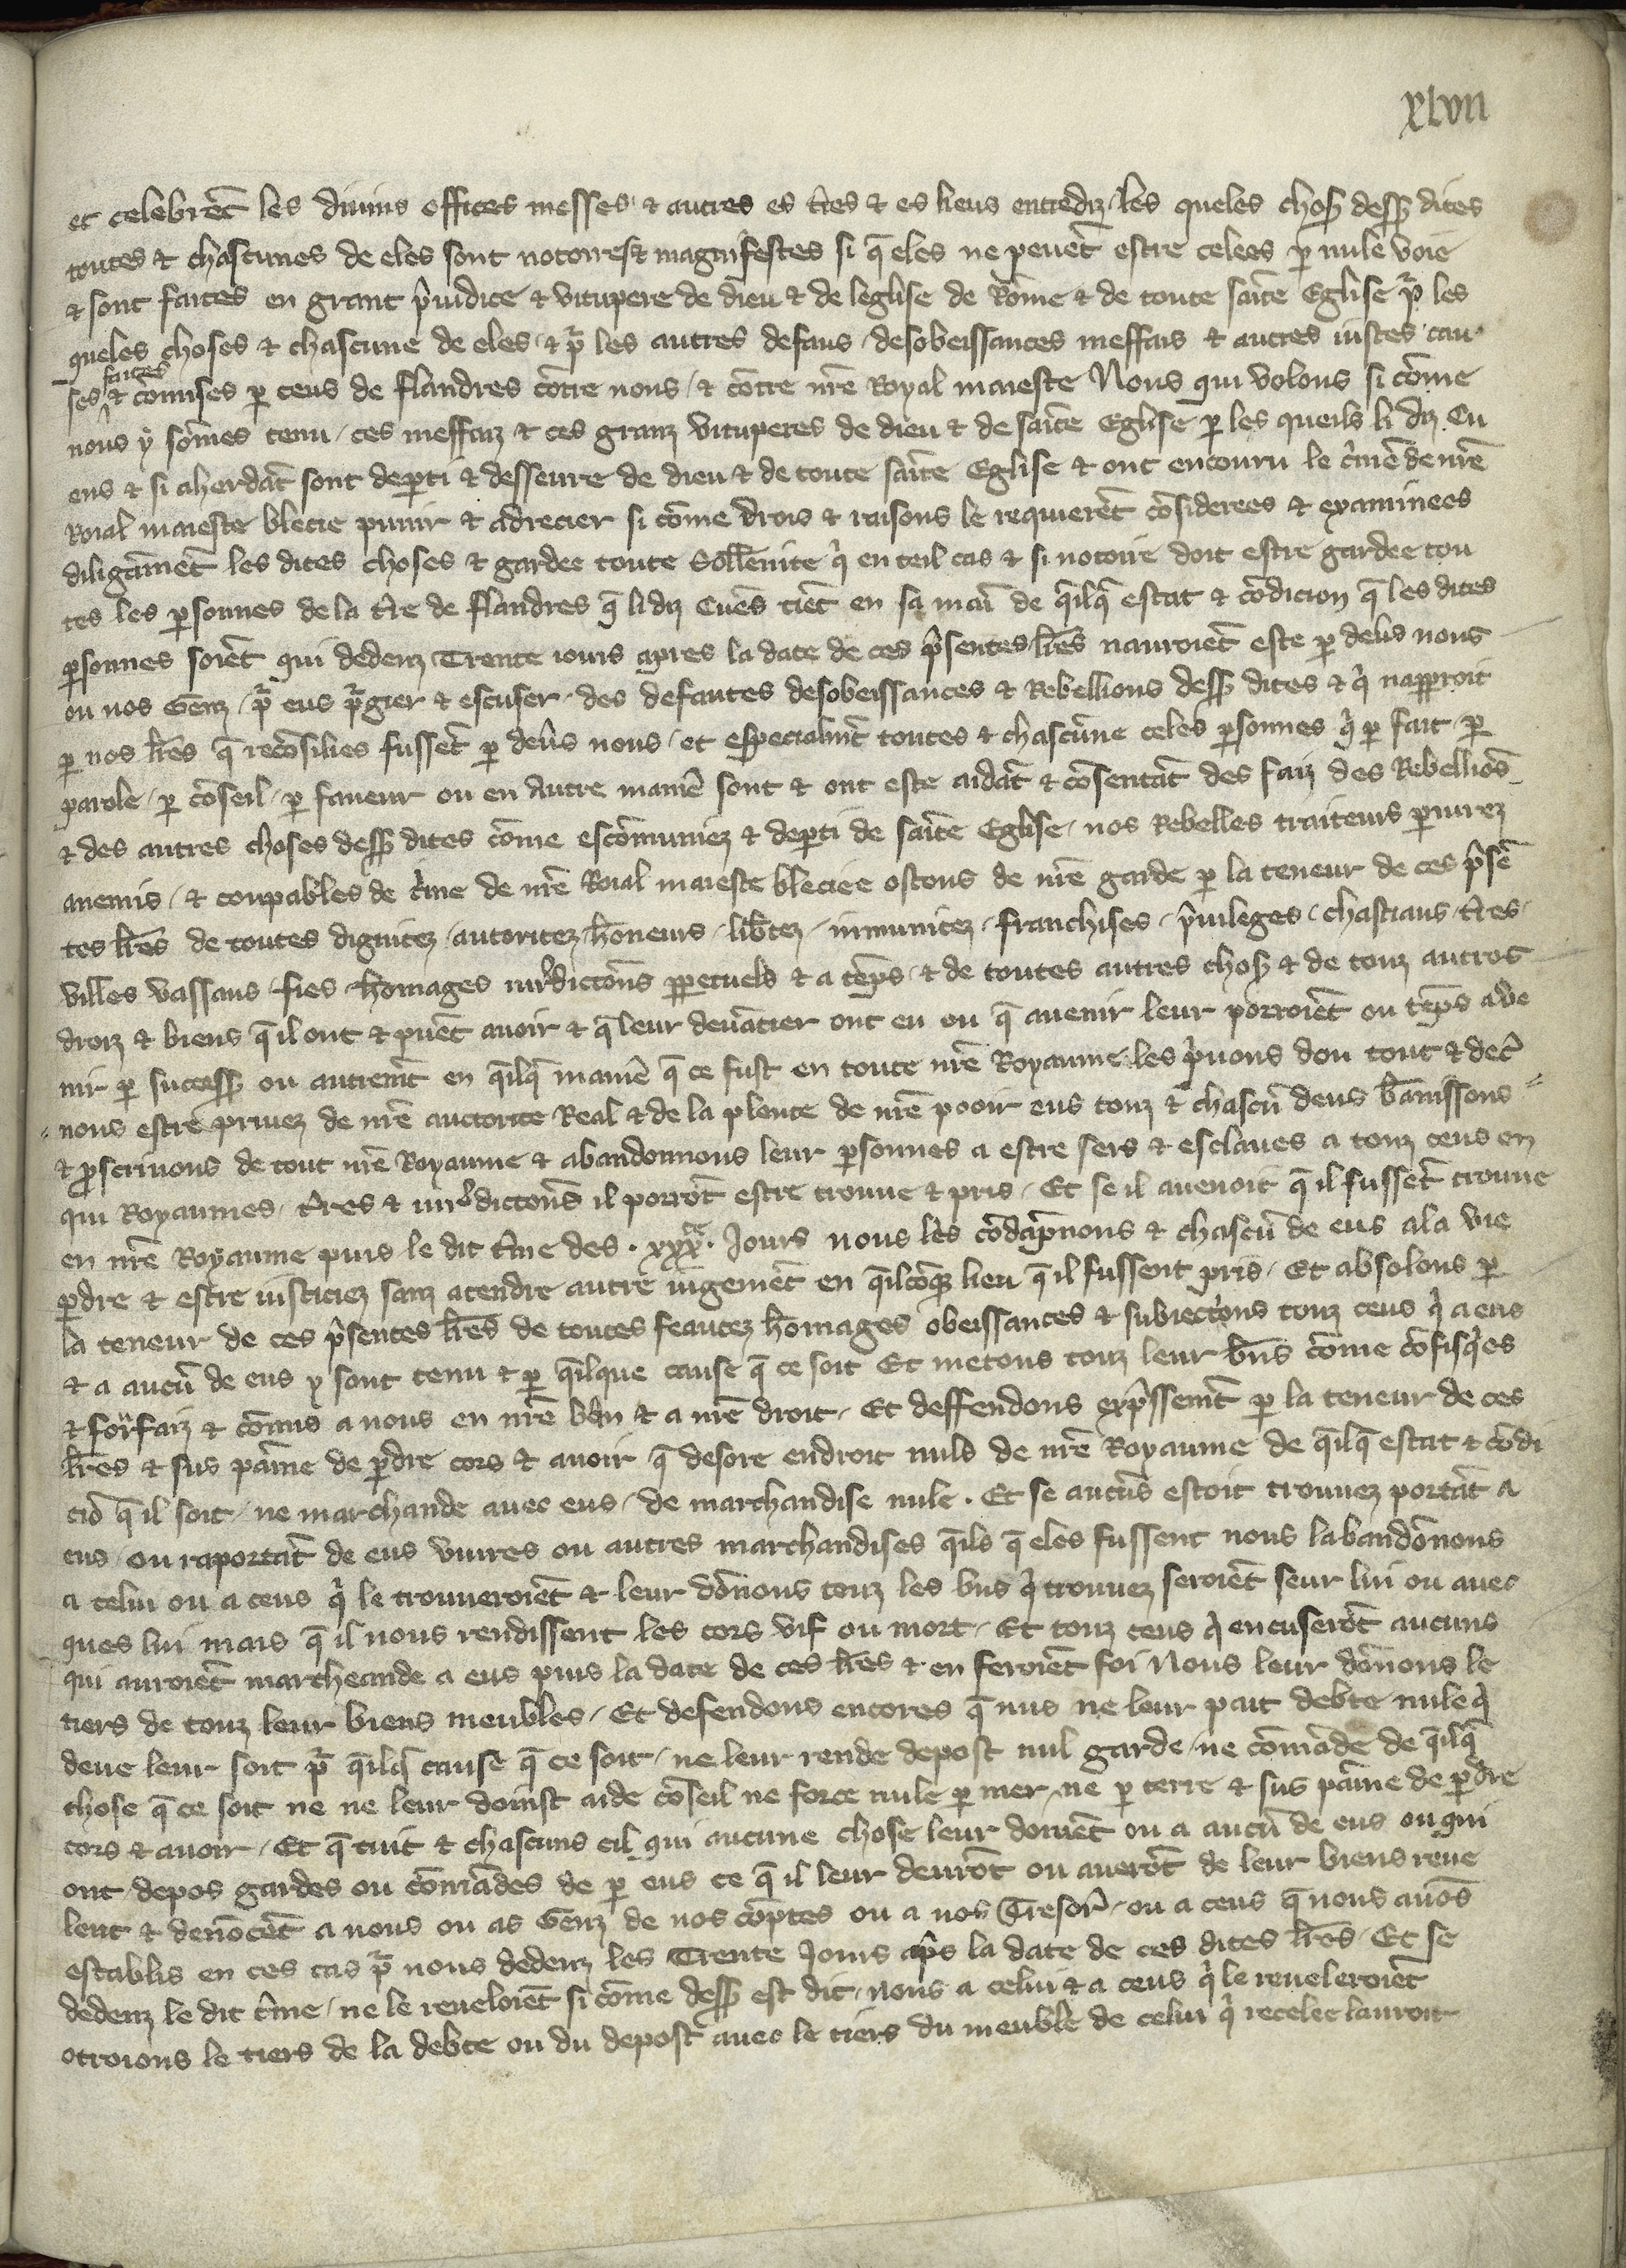 xlvii
et celebrēt les diuins offices messes / ⁊ autres es t̄res ⁊ es lieus entrediz / les queles chos̄ dess̄ dites
toutes ⁊ chascunes de eles sont notoires ⁊ magnifestes si q̄ eles ne peuēt estre celees ꝑ nule voie
⁊ sont faites en grant p̄iudice ⁊ vitupere de dieu ⁊ de leglise de Rōme ⁊ de toute saīte Eglise pͬ les
queles choses ⁊ chascune de eles / ⁊ pͬ les autres defaus / desobeissances meffais ⁊ autres iustes cau
faites
ses ⁊ cōmises ꝑ ceus de flandres cōtre nous / ⁊ cōtre nr̄e Royal maieste Nous qui volons si cōme
nous y sōmes tenu / ces meffaiz ⁊ ces granz vituperes de dieu ⁊ de saīte Eglise ꝑ les queils li diz Cu
ens ⁊ si aherdāt sont deꝑti ⁊ desseure de dieu ⁊ de toute saīte Eglise ⁊ ont encouru le c̄me de nr̄e
Roial maieste blecie punir ⁊ adrecier si cōme drois ⁊ raisons le requierēt cōsiderees ⁊ examinees
diligāmēt les dites choses ⁊ gardee toute Sollēnite qͥ en teil cas ⁊ si notoire doit estre gardee tou
tes les ꝑsonnes de la t̄re de flandres q̄ li diz Cuēs tiēt en sa maī de q̄ilq̄ estat ⁊ cōdicion q̄ les dites
ꝑsonnes soiēt qui dedenz Trente iours apres la date de ces p̄sentes lr̄es nauroiēt este ꝑ deūs nous
ou nos Genz / pͬ eus pͬgier ⁊ escuser / des defautes desobeissances ⁊ Rebellions dess̄ dites ⁊ qͥ naꝑroit
ꝑ nos lr̄es q̄ recōsilies fussēt ꝑ deūs nous / et especialmt̄ toutes ⁊ chascūne celes ꝑsonnes qͥ ꝑ fait / ꝑ
parole / ꝑ cōseil / ꝑ faueur ou en autre manie᷒ sont ⁊ ont este aidāt ⁊ cōsentāt des faiz des Rebelliōs
⁊ des autres choses dess̄ dites cōme escōmuniez ⁊ deꝑti de saīte Eglise / nos Rebelles traiteurs ꝑiurez
anemis / ⁊ coupables de c̄me de nr̄e Roial maieste bleciee ostons de nr̄e garde ꝑ la teneur de ces p̄sē
tes lr̄es de toutes dignitez / autoritez / hōneurs / lib̄tez / inmunitez / franchises / p̄uileges / chastiaus / t̄res /
villes vassaus / fies homages iurͥdictōns ꝑpetuels ⁊ a tēps / ⁊ de toutes autres chos̄ ⁊ de touz autres
droiz ⁊ biens q̄ il ont ⁊ puēt auoir ⁊ q̄ leur deuātier ont eu ou q̄ auenir leur porroiēt ou tēps a ve
nir ꝑ success̄ ou autremt̄ en q̄ilq̄ manie᷒ q̄ ce fust en toute nr̄e Royaume / les p̄uons dou tout ⁊ dec̄
nons estre priuez de nr̄e auctorite Real ⁊ de la plente de nr̄e pooir eus touz ⁊ chascū deus bānissons
⁊ ꝓscriuons de tout nr̄e Royaume ⁊ abandonnons leur ꝑsonnes a estre sers ⁊ esclaues a touz ceus en
qui Royaumes / t̄res ⁊ iurͥdictōns il porrōt estre trouue ⁊ pris / Et se il auenoit q̄ il fussēt trouue
en nr̄e Royaume puis le dit t̄me des . xxx͞e . Jours nous les cōdāpnons ⁊ chascū de eus a la vie
ꝑdre ⁊ estre iusticiez sanz atendre autre iugemēt en q̄ilcōq̄ lieu q̄ il fussent pris / Et absolons ꝑ
la teneur de ces p̄sentes lr̄es de toutes feautez homages obeissances ⁊ subiectōns touz ceus qͥ a eus
⁊ a aucū de eus y sont tenu ⁊ ꝑ q̄ilque cause q̄ ce soit Et metons touz leur bn̄s cōme cōfisqͥes
⁊ forfaiz ⁊ cōmis a nous en nr̄e bān ⁊ a nr̄e droit / Et deffendons exp̄ssemt̄ ꝑ la teneur de ces
lr̄es ⁊ sus paīne de ꝑdre cors ⁊ auoir q̄ desore endroit nuls de nr̄e Royaume de q̄ilq̄ estat ⁊ cōdi
ciō q̄ il soit / ne marchande auec eus / de marchandise nule . Et se aucūs estoit trouuez portāt a
eus / ou raportāt de eus viures ou autres marchandises q̄ils q̄ eles fussent nous labandōnons
a celui ou a ceus qͥ le trouueroiēt ⁊ leur dōnons touz les bn̄s qͥ trouuez seroiēt seur lui ou auec
ques lui mais q̄ il nous rendissent les cors vif ou mort / Et touz ceus qͥ encuserōt aucuns
qui auroiēt marcheande a eus puis la date de ces lr̄es ⁊ en feroiēt foi Nous leur dōnons le
tiers de touz leur biens meubles / Et defendons encores q̄ nus ne leur pait debte nule qͥ
deue leur soit pͬ q̄ilq̄ cause q̄ ce soit / ne leur rende depost nul garde / ne cōmāde de q̄ilq̄
chose q̄ ce soit ne ne leur doinst aide cōseil ne force nule ꝑ mer / ne ꝑ terre ⁊ sus paīne de ꝑdre
cors ⁊ auoir / Et q̄ tuit ⁊ chascuns cil qui aucune chose leur doiuēt ou a aucū de eus ou qui
ont depos gardes ou cōmādes de ꝑ eus ce q̄ il leur deurōt ou auerōt de leur biens reue
lent ⁊ denōcēt a nous ou as Genz de nos cōptes ou a nos Tresor̄ / ou a ceus q̄ nous auōs
establis en ces cas pͬ nous dedenz les Trente Jours ap̄s la date de ces dites lr̄es / Et se
dedenz le dit t̄me / ne le reueloiēt si cōme dess̄ est dit / nous a celui ⁊ a ceus qͥ le reueleroiēt
otroions le tiers de la debte ou du depost auec le tiers du meuble de celui qͥ recelee lauroit